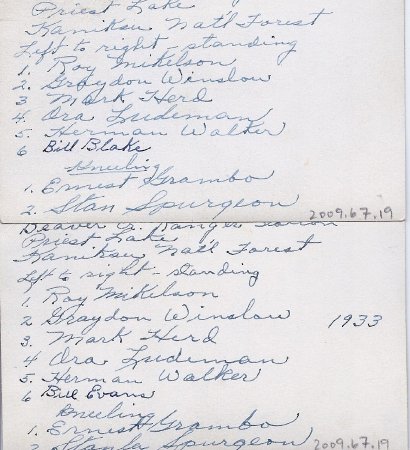 Priest Lake
Kaniksu Nat'l Forest
Left to right - standing
1. Roy Mikelson
2. Graydon Winslow
3 Mark Herd
4. Ora Ludeman
5. Herman Walker
6 Bill Blake
Kneeling
1. Ernest Grambo
2. Stan Spurgeon
2009.67.19
Beaver Cr. Ranger Station
Priest Lake
Kaniksu Nat'l Forest
Left to right - Standing
1. Roy Mikelson
2 Graydon Winslow 1933
3. Mark Herd
4 Ora Ludeman
5. Herman Walker
6 Bill Evans
Kneeling
1. Ernest Grambo
2 Stanla Spurgeon
2009.67.19